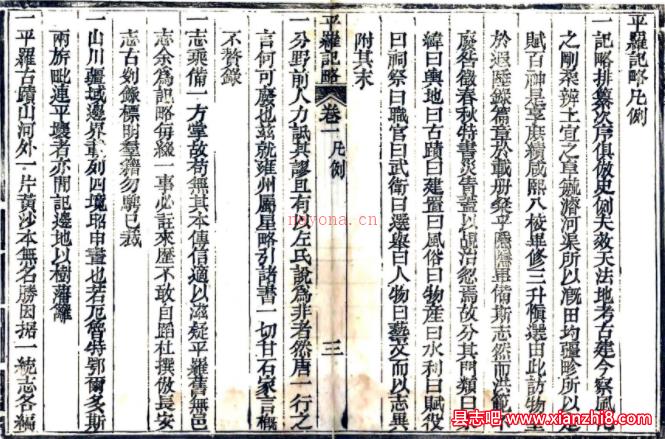 平羅記略凡例
一記略排纂次序俱倣史例夫效天法地考古建今察風化
之剛柔辨土宜之阜毓濬河渠所以溉田均疆畛所以足
賦百神是享庶績咸熙八校畢修三升愼選由此訪物望
於遐陬錄篇章於載册粲乎隱隱畢備斯志然而洪範八
廢咎徵春秋特書災眚蓋以覘治忽焉故分其門類曰星
緯曰輿地曰古蹟曰建置曰風俗曰物産曰水利曰賦役
曰祠祭曰職官曰武衛曰選舉曰人物曰藝文而以志異
附其末
平羅記略
卷一凡例
三
一分野前人力詆其謬且有以左氏說爲非者然唐一行之
言何可廢也兹就雍州屬星略引諸書一切甘石家言槪
不贅錄
一志乘備一方掌故苟無其本傳信適以滋疑平羅舊無邑
志余爲記略每綴一事必註來歷不敢自蹈杜撰倣長安
志古刻錄標明羣籍勿勦已裁
一山川疆域邊界載列四境昭申畫也若厄魯特鄂爾多斯
兩旂毗連平壤者亦閒記邊地以樹藩籬
一平羅古蹟山河外一片黄沙本無名勝因据一統志各編
nayona.cn
县志吧
www.xianzhi8.com